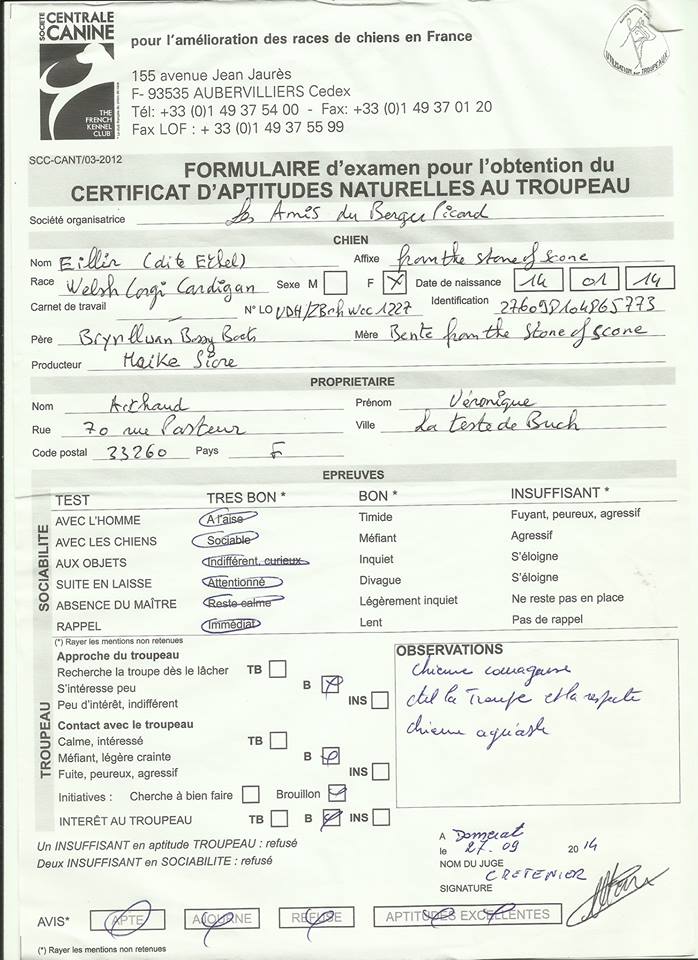 SOCIETE CENTRALE CANINE
THE FRENCH KENNEL CLUB
pour l'amélioration des races de chiens en France
155 avenue Jean Jaurès
F- 93535 AUBERVILLIERS Cedex
Tél: +33 (0)1 49 37 54 00 - Fax: +33 (0)1 49 37 01 20
Fax LOF : + 33 (0)1 49 37 55 99
UTILISATION sur TROUPEAUX
SCC-CANT/03-2012
FORMULAIRE d'examen pour l'obtention du
CERTIFICAT D'APTITUDES NATURELLES AU TROUPEAU
Société organisatrice Les Amis du Berger Picard
CHIEN
Nom Eillir (dite Ethel) Affixe from the stone of scone
Race Welsh Corgi Cardigan Sexe M F X Date de naissance 14 01 14
Carnet de travail N° LO VDH/ZBrh Wcc 1227 Identification 276098104865773
Père Brynllwan Bossy Boots Mère Bente from the Stone of scone
Producteur Maike
PROPRIETAIRE
Nom Arthaud Prénom Véronique
Rue 70 rue Pasteur Ville La teste de Buch
Code postal 33260 Pays F
EPREUVES
SOCIABILITE
TEST TRES BON * BON * INSUFFISANT *
AVEC L'HOMME A l'aise Timide Fuyant, peureux, agressif
AVEC LES CHIENS Sociable Méfiant Agressif
AUX OBJETS Indifférent, curieux Inquiet S'éloigne
SUITE EN LAISSE Attentionné Divague S'éloigne
ABSENCE DU MAÎTRE Reste calme Légèrement inquiet Ne reste pas en place
RAPPEL Immédiat Lent Pas de rappel
(*) Rayer les mentions non retenues
TROUPEAU
Approche du troupeau
Recherche la troupe dès le lâcher TB
S'intéresse peu B
Peu d'intérêt, indifférent INS
Contact avec le troupeau
Calme, intéressé TB
Méfiant, légère crainte B
Fuite, peureux, agressif INS
Initiatives : Cherche à bien faire Brouillon
INTERÊT AU TROUPEAU TB B INS
OBSERVATIONS
chienne
la troupe et la respecte
chienne
Un INSUFFISANT en aptitude TROUPEAU : refusé
Deux INSUFFISANT en SOCIABILITE : refusé
A Domerat
le 27.09 2014
NOM DU JUGE
CRETENIER
SIGNATURE
AVIS* APTE AJOURNE REFUSE APTITUDES EXCELLENTES
(*) Rayer les mentions non retenues